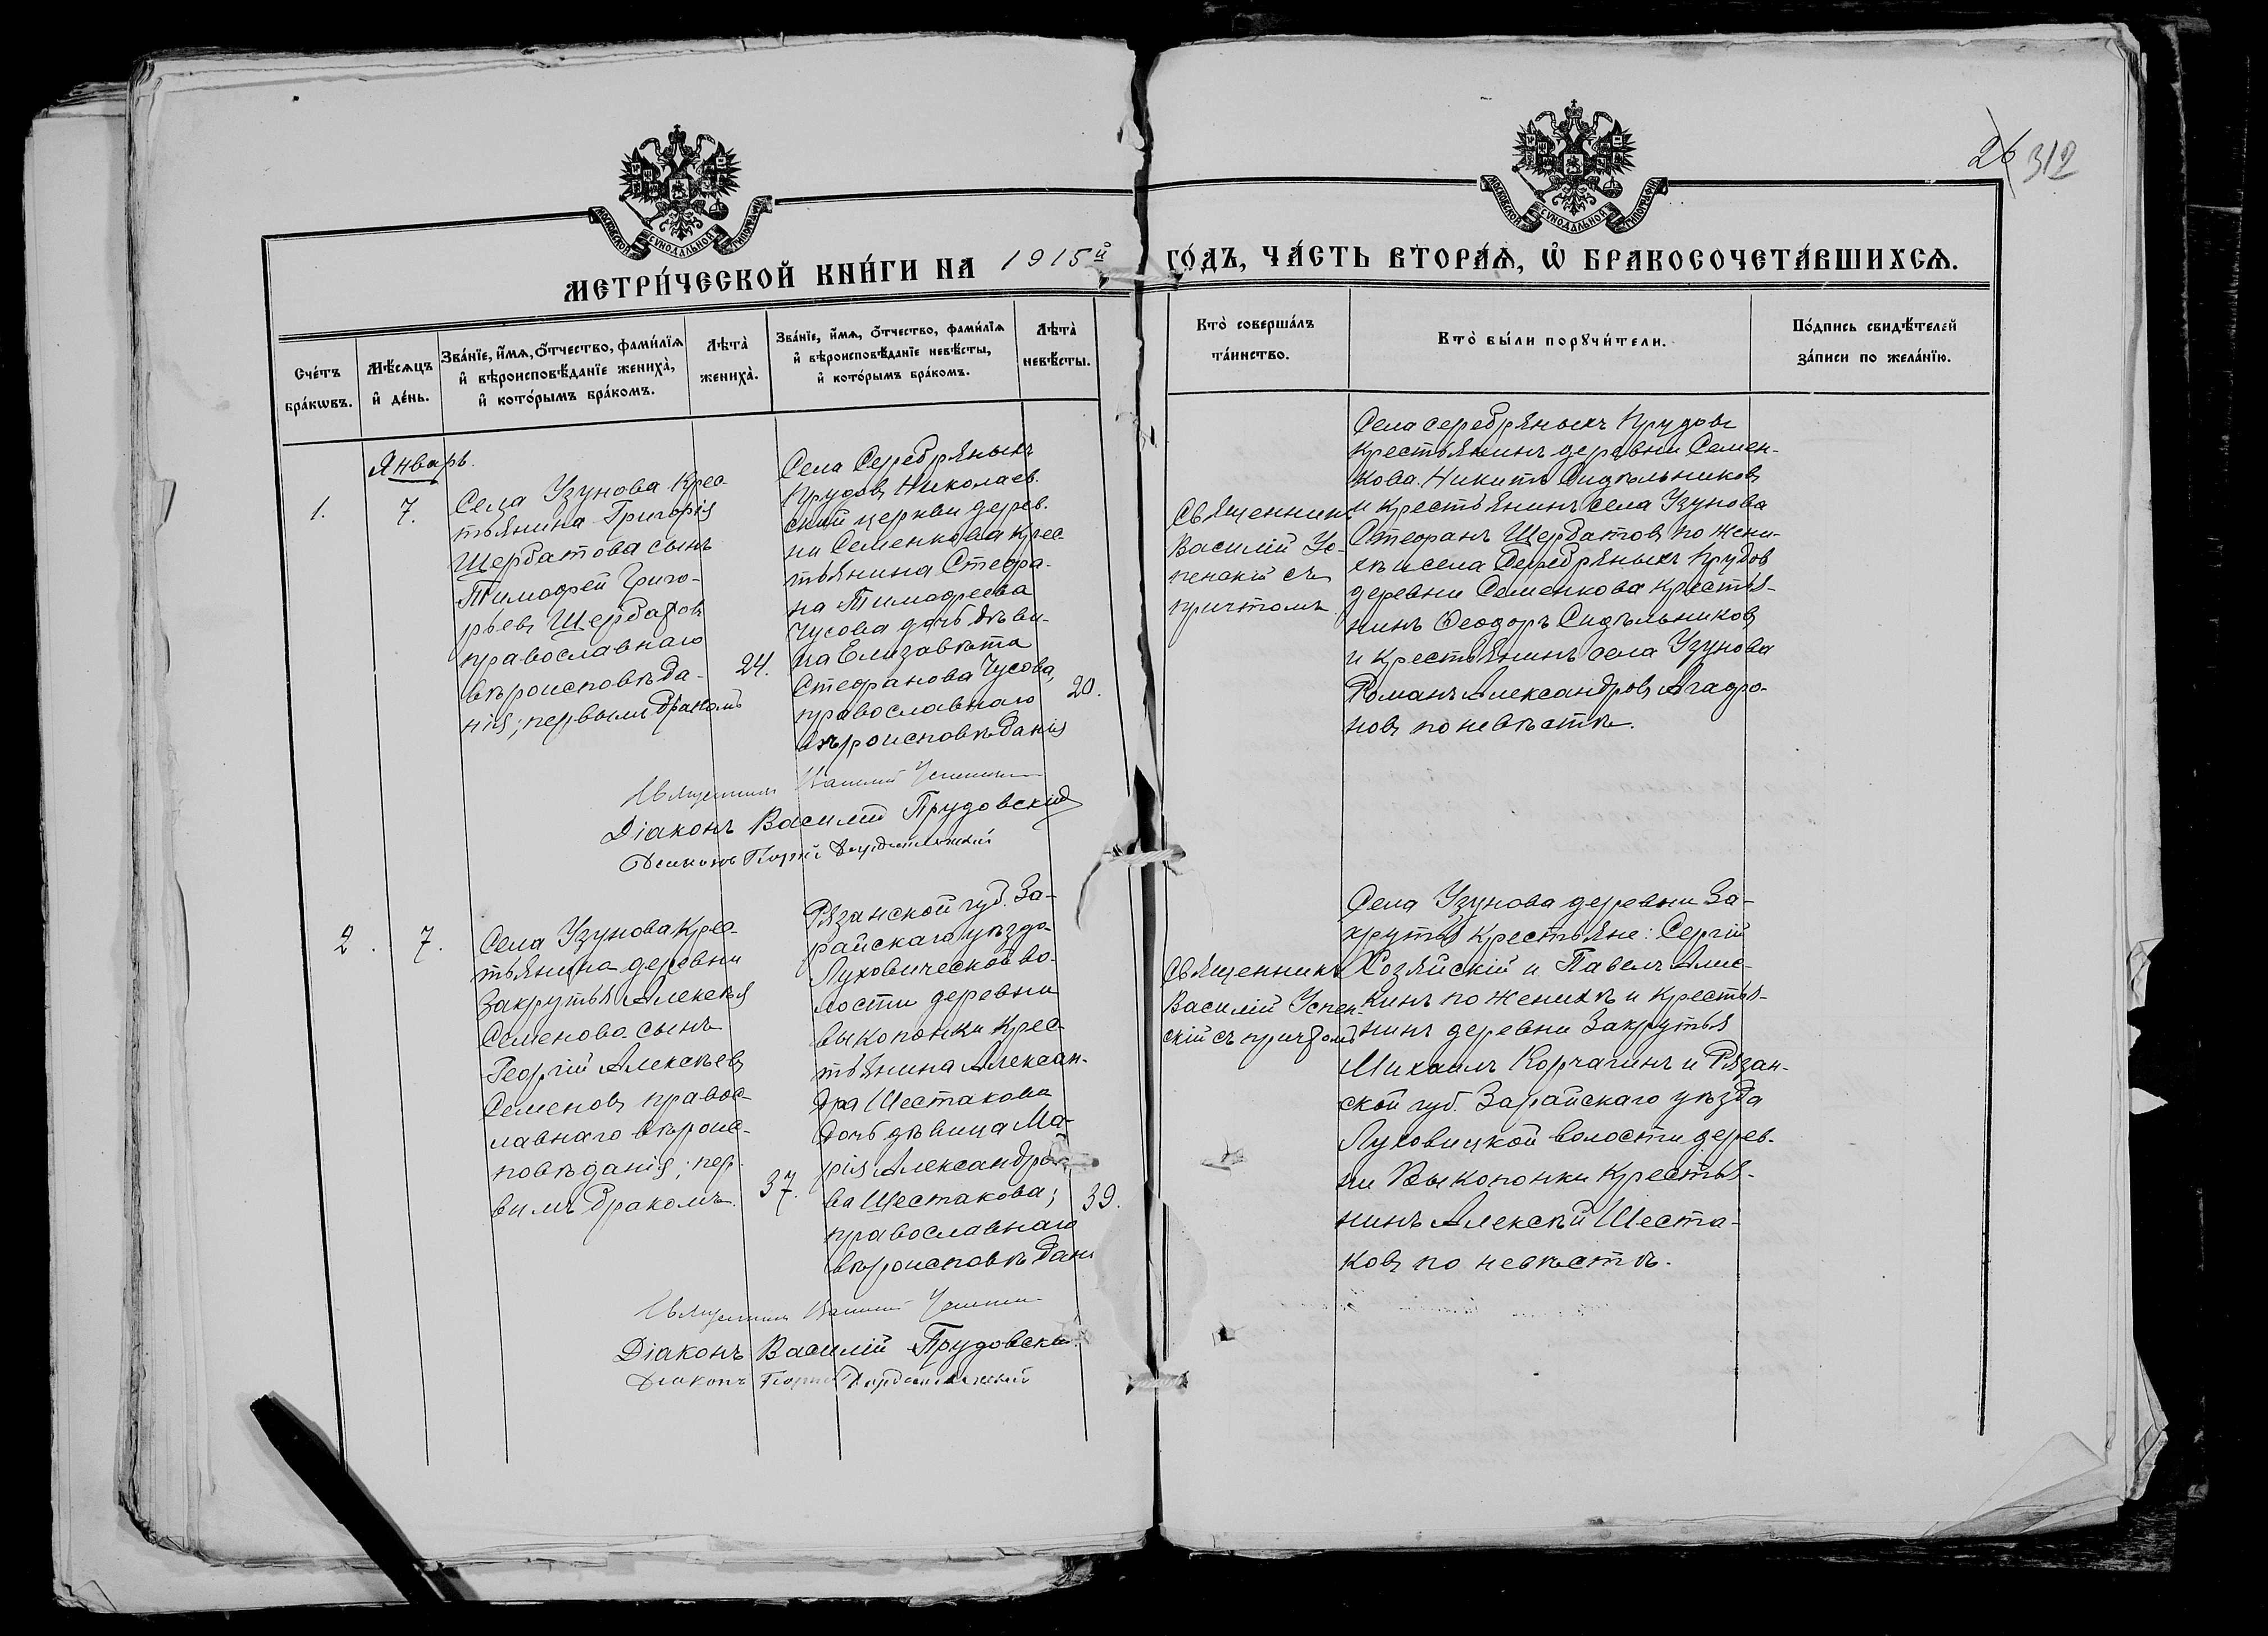 26 312
МОСКОВСКОЙ СУНОДАЛЬНОЙ ТИПОГРАФІИ
МОСКОВСКОЙ СУНОДАЛЬНОЙ ТИПОГРАФІИ
МЕТРИ́ЧЕСКОЙ КНИ́ГИ НА 1915й ГО́ДЪ, ЧА́СТЬ ВТОРА́Я, Ѡ БРАКОСОЧЕТА́ВШИХСѦ.
Сче́тъ
бра́кѡвъ.
Мѣ́сѧцъ
и҆ де́нь.
Зва́нїе, и҆́мѧ, ѻ҆́тчество, фами́лїѧ
и҆ вѣроисповѣ́данїе жениха̀,
и҆ кото́рымъ бра́комъ.
Лѣта̀
жениха̀.
Зва́нїе, и҆́мѧ, ѻ҆́тчество, фами́лїѧ
и҆ вѣроисповѣ́данїе невѣ́сты,
и҆ кото́рымъ бра́комъ.
Лѣта̀
невѣ́сты.
Кто̀ соверша́лъ
та́инство.
Кто̀ бы́ли порꙋчи́тели.
По́дпись свидѣ́телей
за́писи по жела́нїю.
Январь.
1.
7.
Села Узунова Крес-
тьянина Григорія
Щербатова сынъ
Тимофей Григо-
рьевъ Щербатовъ
православнаго
вѣроисповѣда-
нія; первымъ бракомъ
24.
Села Серебряныхъ
Прудовъ Николаев-
ской церкви дерев-
ни Семенкова крес-
тьянина Стефа-
на Тимофеева
Чусова дочь дѣви-
ца Елизавѣта
Стефанова Чусова,
православнаго
вѣроисповѣданія
20.
Священникъ
Василій Ус-
пенскій съ
причтомъ.
Села серебряныхъ Прудовъ
крестьянинъ деревни Семен-
кова Никита Сидѣльниковъ
и крестьянинъ села Узунова
Стефанъ Щербатовъ по жени-
хѣ и села Серебряныхъ Прудов
деревни Семенкова крестья-
нинъ Ѳеодоръ Сидѣльниковъ
и крестьянинъ села Узунова
Романъ Александровъ Агафо-
новъ по невѣстѣ.
Священникъ Василій Успенскій
Діаконъ Василій Прудовскій
2.
7.
Села Узунова Крес-
тьянина деревни
Закрутья Алексѣя
Семенова сынъ
Георгій Алексѣевъ
Семеновъ правос-
лавнаго вѣроис-
повѣданія; пер-
вымъ бракомъ.
37.
Рязанской губ. За-
райскаго уѣзда
Луховической во-
лости деревни
Выкопонки крес-
тьянина Алексан-
дра Шестакова
дочь дѣвица Ма-
рія Александро-
ва Шестакова;
православнаго
вѣроисповѣдані
39.
Священникъ
Василій Успен-
скій съ причтомъ
Села Узунова деревни За-
крутья крестьяне: Сергій
Хозяйскій и Павелъ Алис-
кинъ по женихѣ и крестья-
нинъ деревни Закрутья
Михаилъ Корчагинъ и Рязан-
ской губ. Зарайскаго уѣзда
Луховицкой волости дерев-
ни Выкопонки крестья-
нинъ Алексѣй Шеста-
ковъ по невѣстѣ.
Священникъ Василій Успенскій
Діаконъ Василій Прудовскій